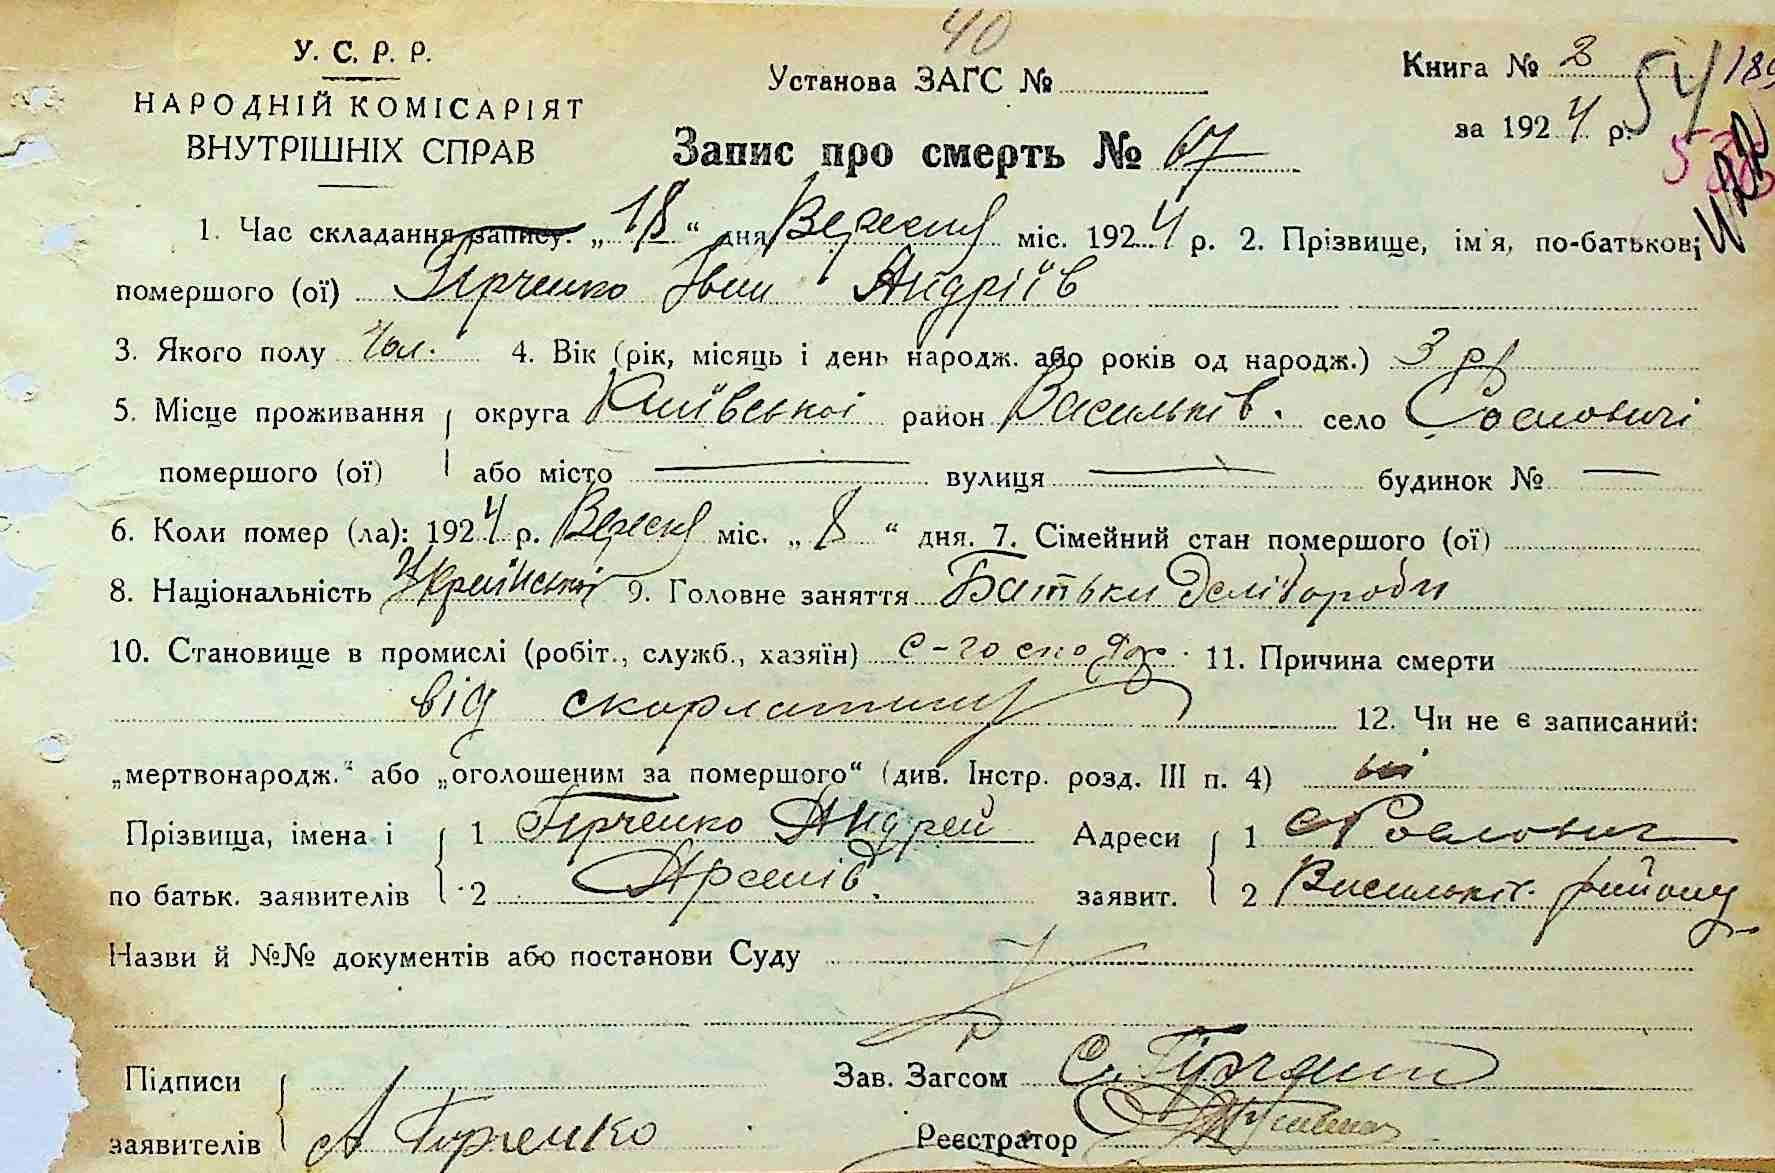 40
У. С. Р. Р.
НАРОДНІЙ КОМІСАРІЯТ
ВНУТРІШНІХ СПРАВ
Установа ЗАГС №
Книга № 3 54 189
за 1924 р.
Запис про смерть № 67
1. Час складання запису: „18“ дня Вересня міс. 1924 р. 2. Прізвище, ім'я, по-батькові
помершого (ої) Гірченко Іван Андріїв
3. Якого полу Чол. 4. Вік (рік, місяць і день народж. або років од народж.) 3 р.
5. Місце проживання округа Київської район Васильків. село
помершого (ої) або місто — вулиця — будинок № —
6. Коли помер (ла): 1924 р. Вересня міс. „8“ дня. 7. Сімейний стан помершого (ої)
8. Національність Української 9. Головне заняття Батьки хлібороби
10. Становище в промислі (робіт., служб., хазяїн) с-господар. 11. Причина смерти
від скорлатини 12. Чи не є записаний:
„мертвонародж.“ або „оголошеним за помершого“ (див. Інстр. розд. III п. 4) ні
Прізвища, імена і 1 Гірченко Андрей Адреси 1
по батьк. заявителів 2 Арсенів. заявит. 2 Васильків. району
Назви й №№ документів або постанови Суду
Підписи Зав. Загсом
заявителів А Гірченко Реєстратор